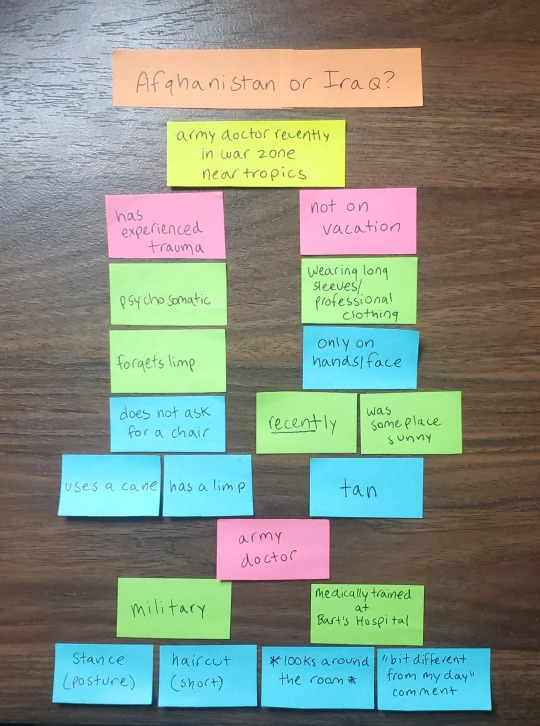 Afghanistan or Iraq?
army doctor recently
in war zone
near tropics
has
experienced
trauma
not on
vacation
psychosomatic
Wearing long
sleeves/
professional
clothing
forgets limp
only on
hands/face
does not ask
for a chair
recently
was
someplace
sunny
uses a cane
has a limp
tan
army
doctor
military
medically trained
at
Bart's Hospital
Stance
(posture)
haircut
(short)
*looks around
the room*
"bit different
from my day"
comment